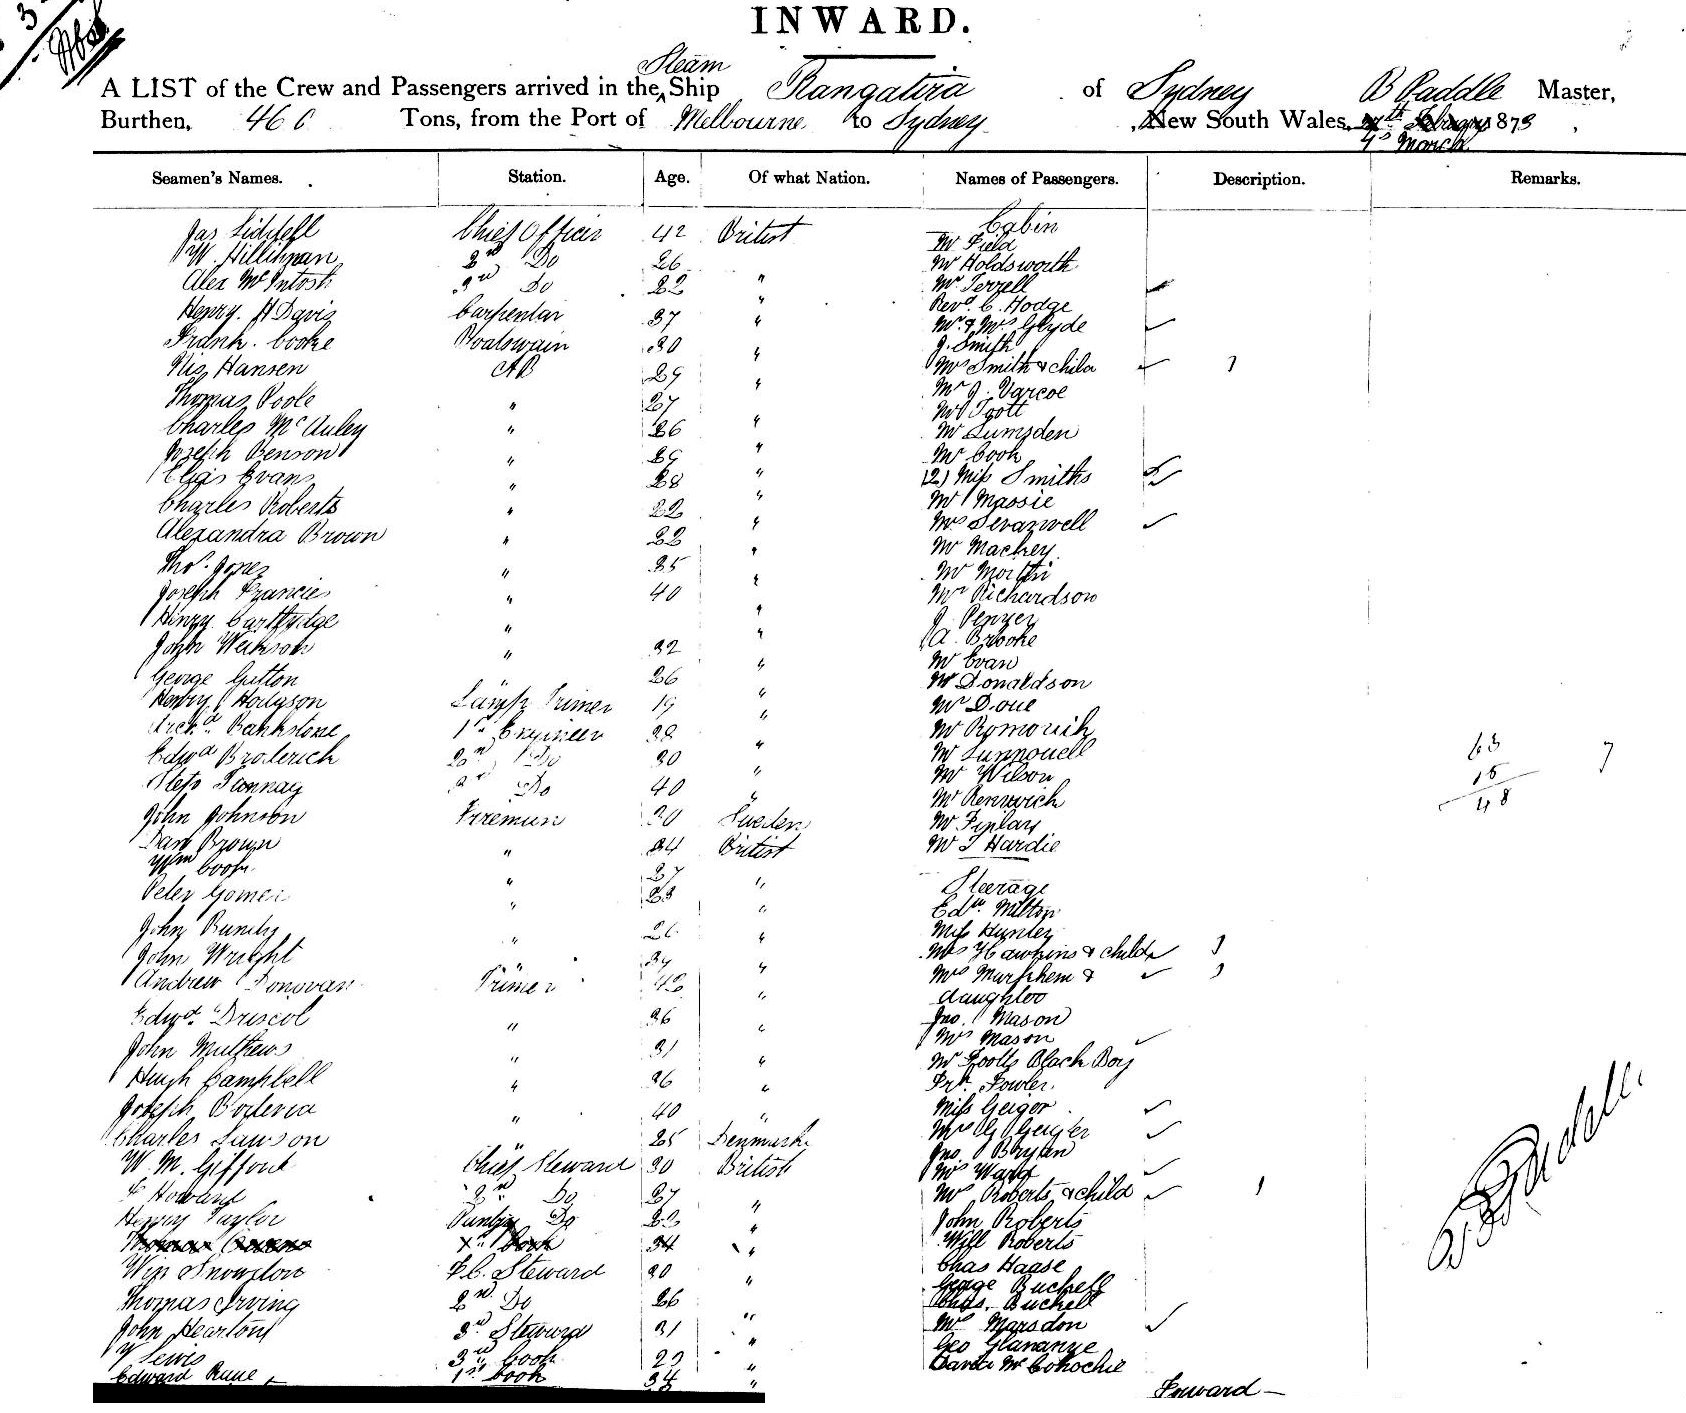 INWARD.
Steam
A LIST of the Crew and Passengers arrived in the Ship Rangatira of Sydney B Paddle Master,
Burthen, 460 Tons, from the Port of Melbourne to Sydney New South Wales, 1873
4th March
Seamen's Names. Station. Age. Of what Nation. Names of Passengers. Description. Remarks.
Jas Liddell Chief Officer 42 British Cabin
Mr Field
W. Hillman 2nd Do 26 Mr Holdsworth
Alex McIntosh 3rd Do 22 " Mr Terrell
Revd C. Hodge
Henry. H Davis Carpenter 37 " Mr & Mrs Glyde
Frank. Cooke Boatswain 30 " J. Smith
Nis Hansen AB 29 " Mrs Smith & child 1
Mr J. Varcoe
Thomas Poole " 27 " Mr Foott
Charles McAuley " 26 " Mr Lumsden
Joseph Benson " 29 " Mr Cook
Elias Evans " 28 " (2) Miss Smiths
Charles Roberts " 22 " Mr Massie
Mrs
Alexandra Brown " 22 " Mr Mackey
Thos. Jones " 35 " Mr Martin
Joseph Francies " 40 " Mr Richardson
Henry Cartlydge " " J. Penrey
A. Brooke
John " 32 " Mr Evan
George Gutton " 26 " Mr Donaldson
Henry Hodgson Lamp Trimer 19 " Mr Doue
Archd Bankstone 1st Engineer 38 " Mr
Edwd Broderich 2nd Do 30 " Mr 63 7
Mr Wilson 15
Do 40 " Mr Renwich 48
John Johnson Fireman 30 Sweden Mr
Dan Brown " 34 British Mr T Hardie
Wm Cook " 27 " Steerage
Peter Gomer " 23 " Edw. Milton
John Bundy " 26 " Miss Hunley
John Wright " 34 " Mrs Hawkins & child 1
Andrew Donovan Trimer 42 " Mrs Murphem & 1
daughter
Edwd. Driscol " 36 " Jno. Mason
Mrs Mason
John Muthews " 31 " Mr Footts Black Boy
Hugh Campbell " 26 " Frk. Fowler.
Joseph " 40 " Miss Geiger
Charles Lawson " 25 Denmark Mrs G Geigler
Jno Bryan
W. M. Gifford Chief Steward 30 British Mrs Ward
F Howard 2nd Do 27 " Mrs Roberts & child 1
Henry Taylor Pantry Do 22 " John Roberts
Cook 34 " Will Roberts
Wm Snowdon F.C. Steward 30 " Chas Haase
George Buckell
Thomas Irving 2nd Do 26 " Chas. Buckell
John Heartont 3rd Steward 31 " Mrs Marsdon
Geo Glananye
Y Lewis 3rd Cook 29 " David McConochie
Edward Rane 1st Cook 34 "
Forward
B Paddle